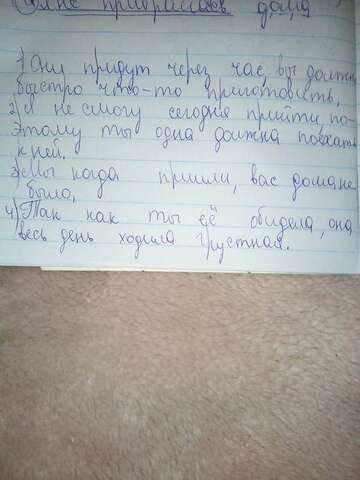 не прибрались дома
1) Они придут через час, вы должны
быстро что-то приготовить,
2) Я не смогу сегодня прийти по-
этому ты одна должна поехать
к ней.
3) Мы когда пришли, вас дома не
было,
4) Так как ты её обидела, она
весь день ходила грустная.